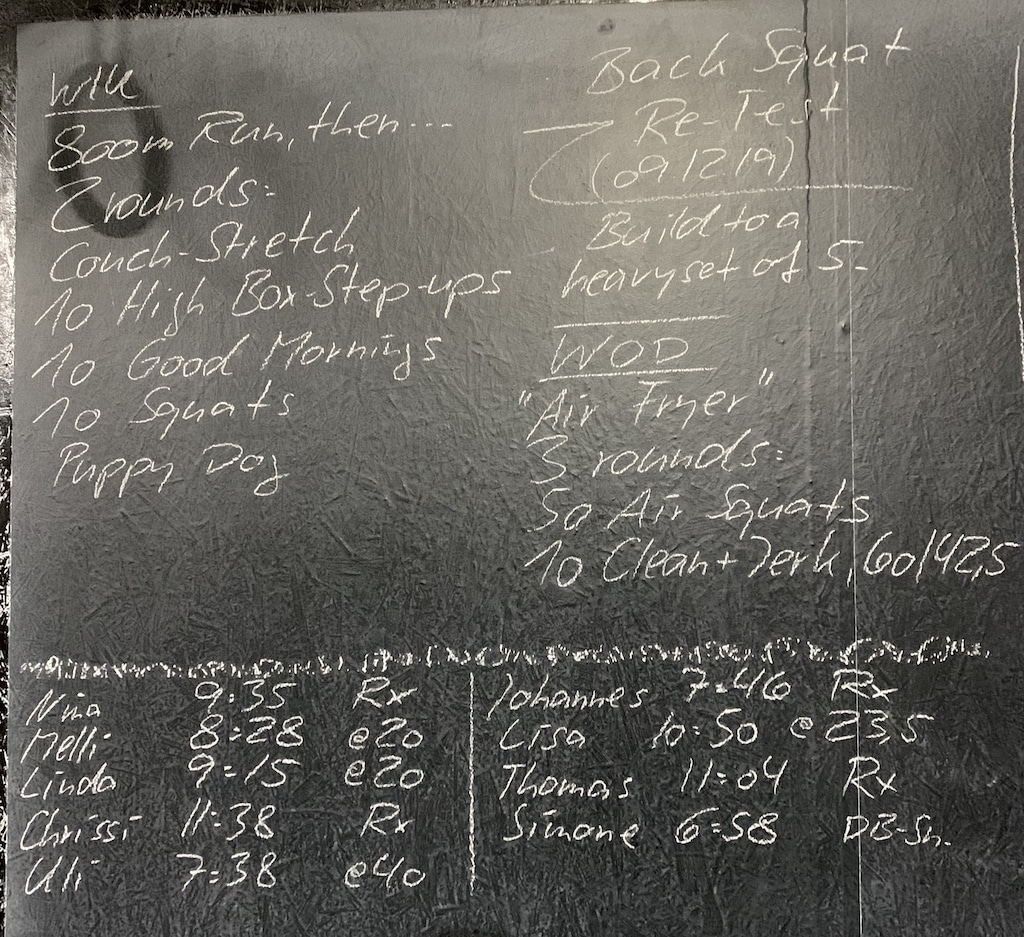 WU
800m Run, then...
2 rounds:
Couch-Stretch
10 High Box-Step-ups
10 Good Mornings
10 Squats
Puppy Dog
Back Squat
Re-Test
(09/12/19)
Build to a
heavy set of 5-
WOD
"Air Fryer"
3 rounds:
50 Air Squats
10 Clean + Jerk, 60/42,5
Nina 9:35 Rx
Melli 8:28 @20
Linda 9:15 @20
Chrissi 11:38 Rx
Uli 7:38 @40
Johannes 7:46 Rx
Lisa 10:50 @23,5
Thomas 11:04 Rx
Simone 6:58 DB-Sn.